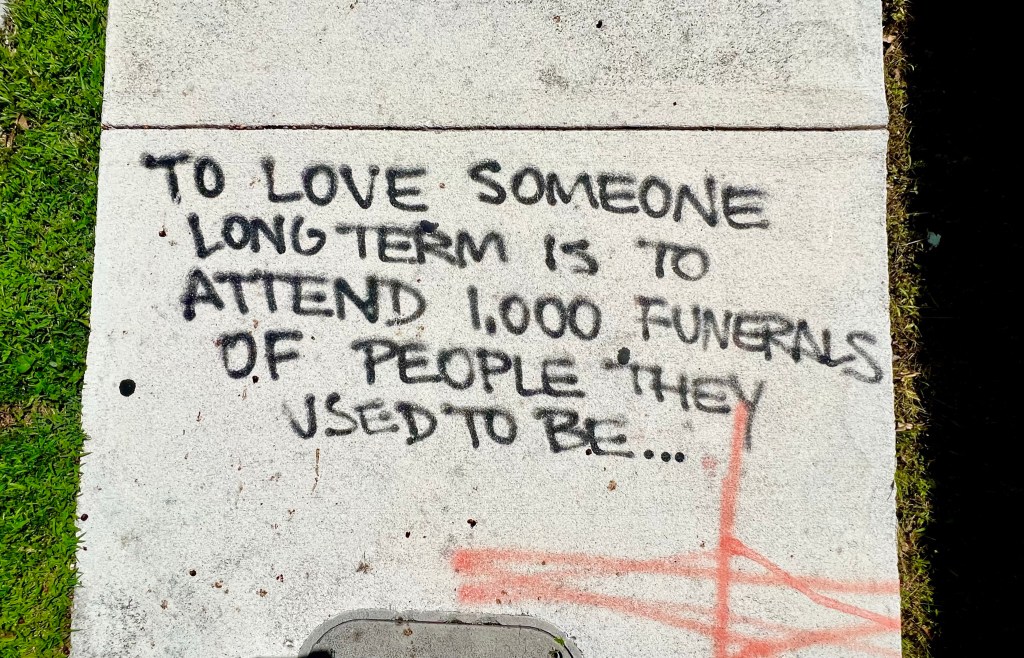 TO LOVE SOMEONE
LONG TERM IS TO
ATTEND 1,000 FUNERALS
OF PEOPLE THEY
USED TO BE...